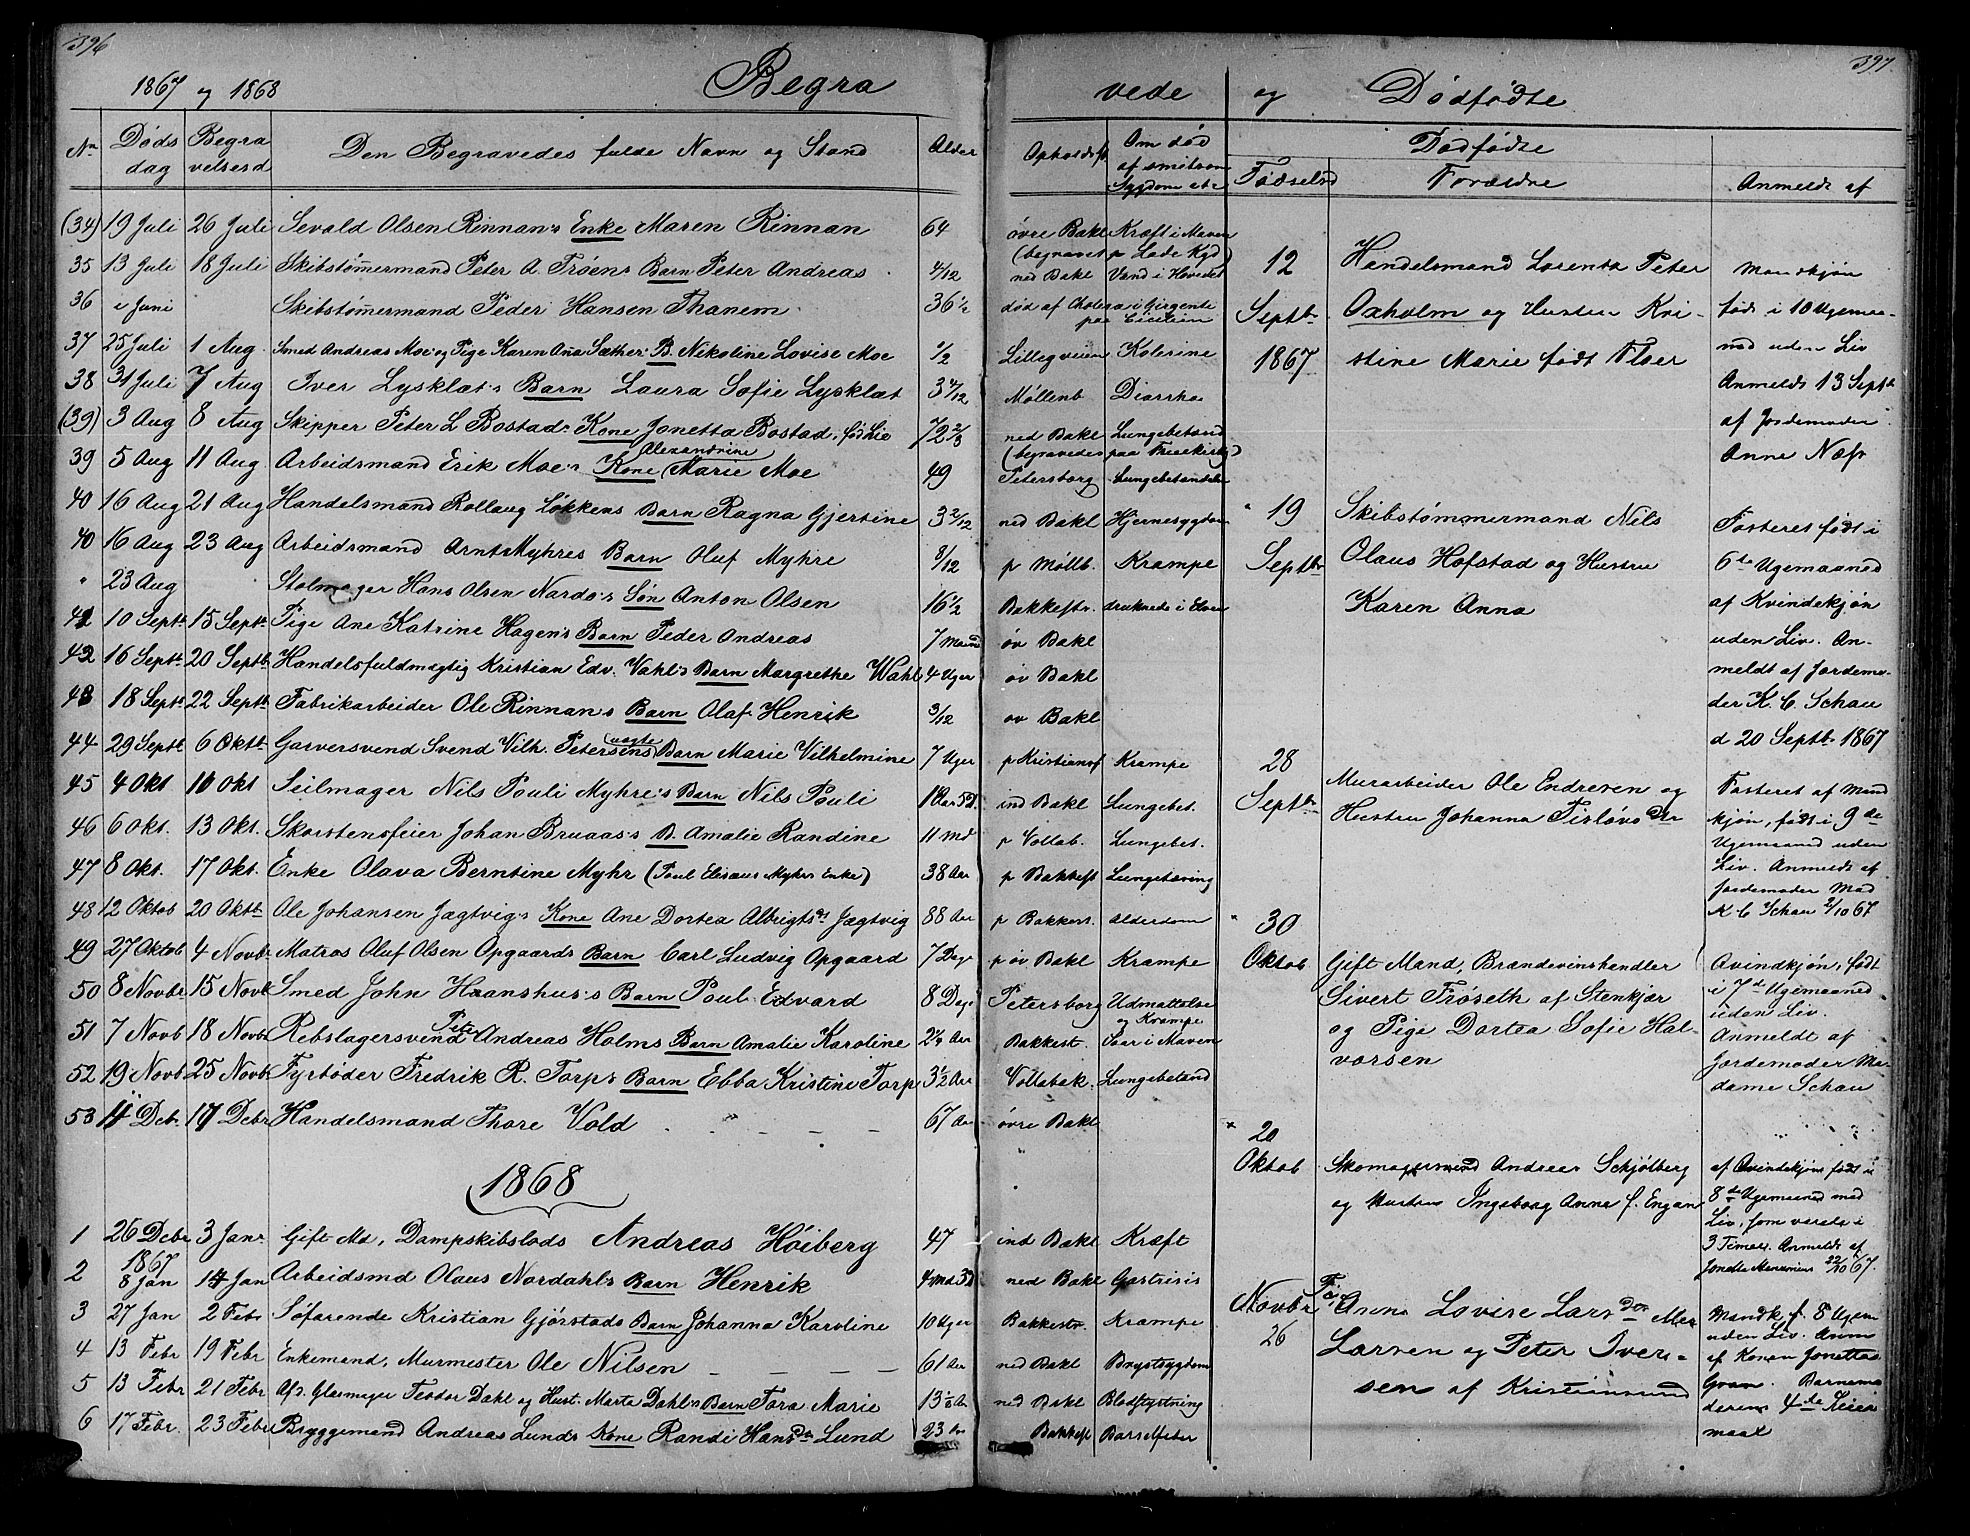 396
1867 og 1868
Begra
Nr Døds dag Begra velsesd Den Begravedes fulde Navn og Stand Alder
(34) 19 Juli 26 Juli Sevald Olsen Rinnan's Enke Maren Rinnan 64
35 13 Juli 18 Juli Skibstømmermand Peter A. Trøens Barn Peter Andreas 4/12
36 i Juni Skibstømmermand Peder Hansen Thanem 36 1/2
37 25 Juli 1 Aug. Smed Andreas Moe og Pige Karen Ana Sæther's B. Nikoline Lovise Moe 1/2
38 31 Juli 7 Aug Iver Lysklæt's Barn Laura Sofie Lysklæt 3 4/12
(39) 3 Aug 8 Aug Skipper Peter L Bostad's Kone Jonetta Bostad, fød Lie 72 2/3
39 5 Aug 11 Aug Arbeidsmand Erik Moe's Kone (Alexandrine Marie Moe 49
40 16 Aug 21 Aug Handelsmand Rollaug Løkkens Barn Ragna Gjertine 3 2/12
40 16 Aug 23 Aug Arbeidsmand Arnt Myhres Barn Oluf Myhre 8/12
" 23 Aug Stolmager Hans Olsen Nardo's Søn Anton Olsen 16 1/2
41 10 Septr 15 Septr Pige Ane Katrine Hagen's Barn Peder Andreas 7 Maaned
42 16 Septr 20 Septb Handelsfuldmægtig Kristian Edv. Vahl's Barn Margrethe Wahl 4 Uger
43 18 Septr 22 Septb Fabrikarbeider Ole Rinnan's Barn Olaf Henrik 3/12
44 29 Septr 6 Oktbr Garversvend Svend Vilh. Petersens Barn Marie Vilhelmine 7 Uger
45 4 Okt 10 Okt Seilmager Nils Pouli Myhre's Barn Nils Pouli 1 Aar 5 D.
46 6 Okt. 13 Okt. Skorstensfeier Johan Bruaas's B. Amalie Randine 11 Md
47 8 Okt. 17 Okt. Enke Olava Berntine Myhr (Poul Eliseus Myhrs Enke) 38 Aar
48 12 Oktob 20 Oktbr Ole Johansen Jægtvig's Kone Ane Dortea Albrigtsdr Jægtvig 88 Aar
49 27 Oktob 4 Novbr Matros Oluf Olsen Opgaards Barn Carl Ludvig Opgaard 7 Dage
50 8 Novbr 15 Novb Smed John Haanshus's Barn Poul Edvard 8 Dage
51 7 Novb 18 Novbr Rebslagersvend Peter Andreas Holms Barn Amalie Karoline 2 1/4 Aar
52 19 Novb. 25 Novbr Fyrbøder Fredrik R. Torp's Barn Ebba Kristine Torp 3 1/2 Aar
53 11 Debr. 17 Debr Handelsmand Thore Vold 67 Aar
1868
1 26 Debr 1867 3 Janr Gift Md, Dampskibslods Andreas Höiberg 47
2 8 Jan 14 Jan Arbeidsmd Olaus Nordahl's Barn Henrik 4 Md 3 D
3 27 Jan 2 Febr Söfarende Kristian Gjörstads Barn Johanna Karoline 10 Uger
4 13 Febr 19 Febr Enkemand, Murmester Ole Nilsen 61 Aar
5 13 Febr 21 Febr Afd. Glasmager Teodor Dahl og Hust. Marta Dahl's Barn Tora Marie 13 1/2 Aar
6 17 Febr. 23 Febr Bryggemand Andreas Lunds Kone Randi Hansdr Lund 23 Aar
397
vede og Dödfødte
Opholdsst Om død af smitsom Sygdom etc
Dødfødte
Fødselsd Forældre Anmeldt af
øvre Bakl Kræft i Maven
(begravet pr Lade Kgd)
ned Bakl Vand i Hovedet
død af Cholera i Girgente
paa Cicilien
Lillegveien Kolerine
Møllenb Diarrhoe
ned Bakl Lungebetænd
(begravedes paa Frue Kirkeg)
Petersborg Lungebetændelse
ned Bakl Hjernesygdom
p Møllb. Krampe
Bakkestr. druknede i Elven
öv Bakl
öv Bakl
ov Bakl
p Kristiansf Krampe
ind Bakl Lungebet.
p Vollab. Lungebet.
p Bakkest Lungetæring
p Bakkest. Alderdom
p öv Bakl Krampe
Petersborg Udmattelse
og Krampe
Bakkest. Saar i Maven
Vollabak. Lungebetænd
øvre Bakl
ind Bakl Kræft
ned Bakl Gastrisis
Bakkestr. Krampe
ned Bakl Brystsygdom
ned Bakl Blodstyrtning
Bakkest Barselfeber
12
Septbr
1867
Handelsmand Lorents Peter
Oxholm og Hustru Kri-
stine Marie født Floer
Mandskjøn
født i 10 Ugemaa-
ned uden Liv
Anmeldt 13 Septb
af Jordemoder
Anne Næss
19
Septbr
Skibstømmermand Nils
Olaus Hofstad og Hustru
Karen Anna
Fosteret født i
6te Ugemaaned
af Kvindekjön
uden Liv. An-
meldt af Jordemo-
der K. C. Schau
d 20 Septb. 1867
28
Septbr
Murarbeider Ole Endresen og
Hustru Johanna Tislövsdr
Fosteret af Mand
kjön, født i 9de
Ugemaaned uden
Liv. Anmeldt af
Jordemoder Mad
K C Schau 2/10 67
30
Oktob
Gift Mand, Brændevinshandler
Sivert Fröseth af Stenkjær
og Pige Dortea Sofie Hal-
vorsen
Qvindkjøn, født
i 7de Ugemaaned
uden Liv.
Anmeldt af
Jordemoder Ma-
dame Schau
20
Oktob
Skomagersvend Andreas Schjölberg
og Hustru Ingeborg Anna f. Engan
af Qvindekjön født i
8de Ugemaaned med
Liv, som varede i
3 Timer. Anmeldt af
22/10 67.
Novbr
26
Pige Anna Lovise Larsdr
Larsen og Peter Iver-
sen af Kristiansund
Mandkj. f. 8 Ugem
uden Liv. Anm
af Konen Jonetta
Gram. Barnemo
deren 4de Leier
maal